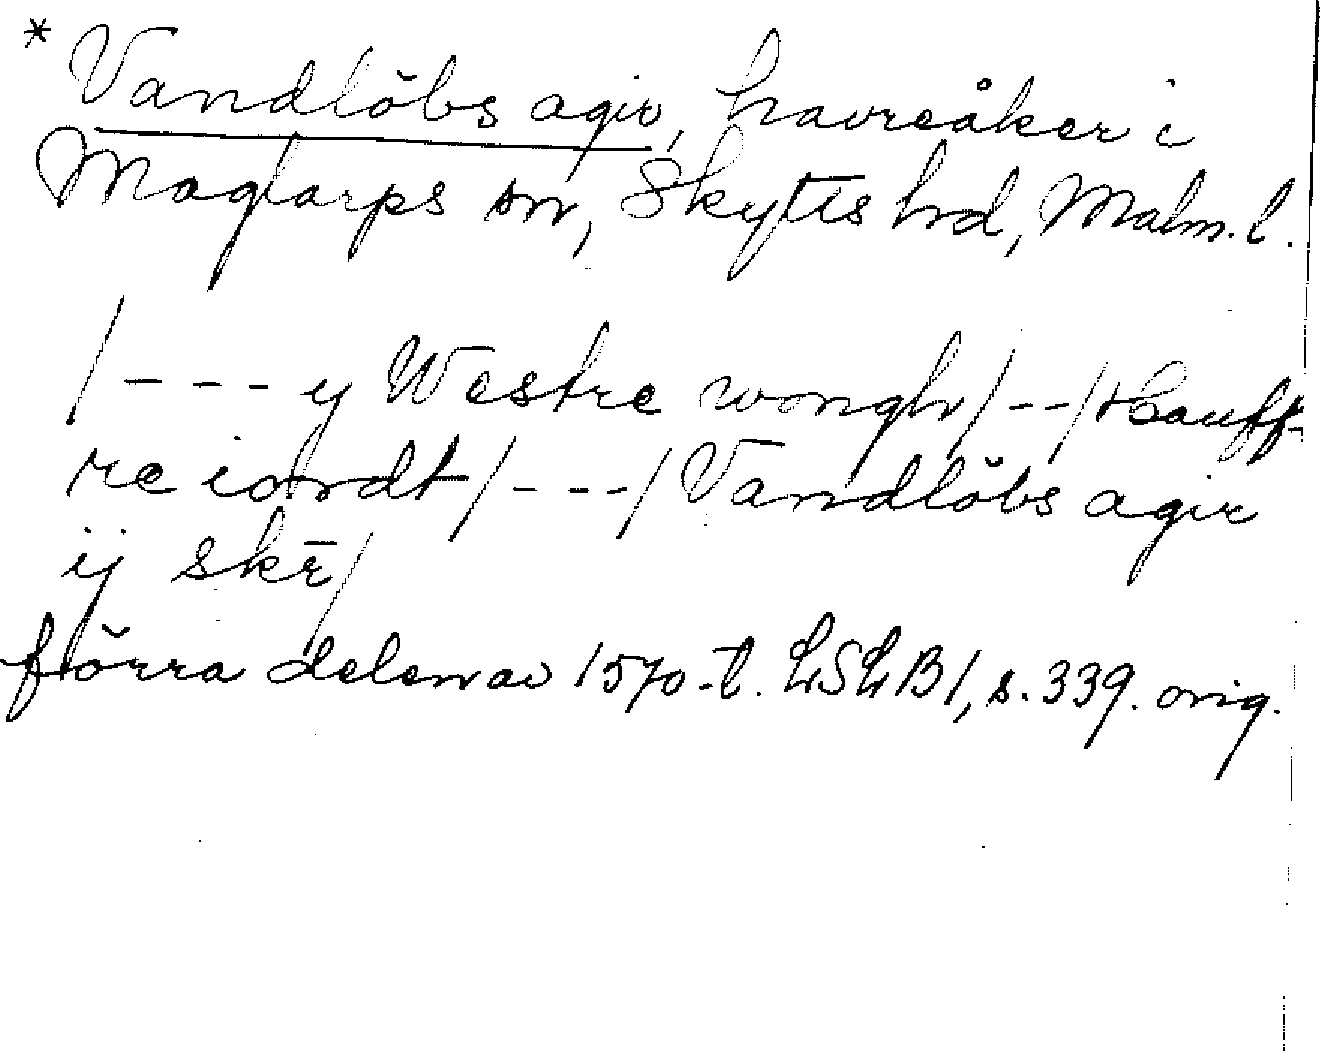 * Vandlöbs agir, havreåker i
Maglarps sn, Skytts hd, Malm. l.
/--- y Westre wongh/--/Hauff-
re iordt/---/Vandlöbs agir
ij skē/
förra delen av 1570-t. LSLB1, s. 339. orig.